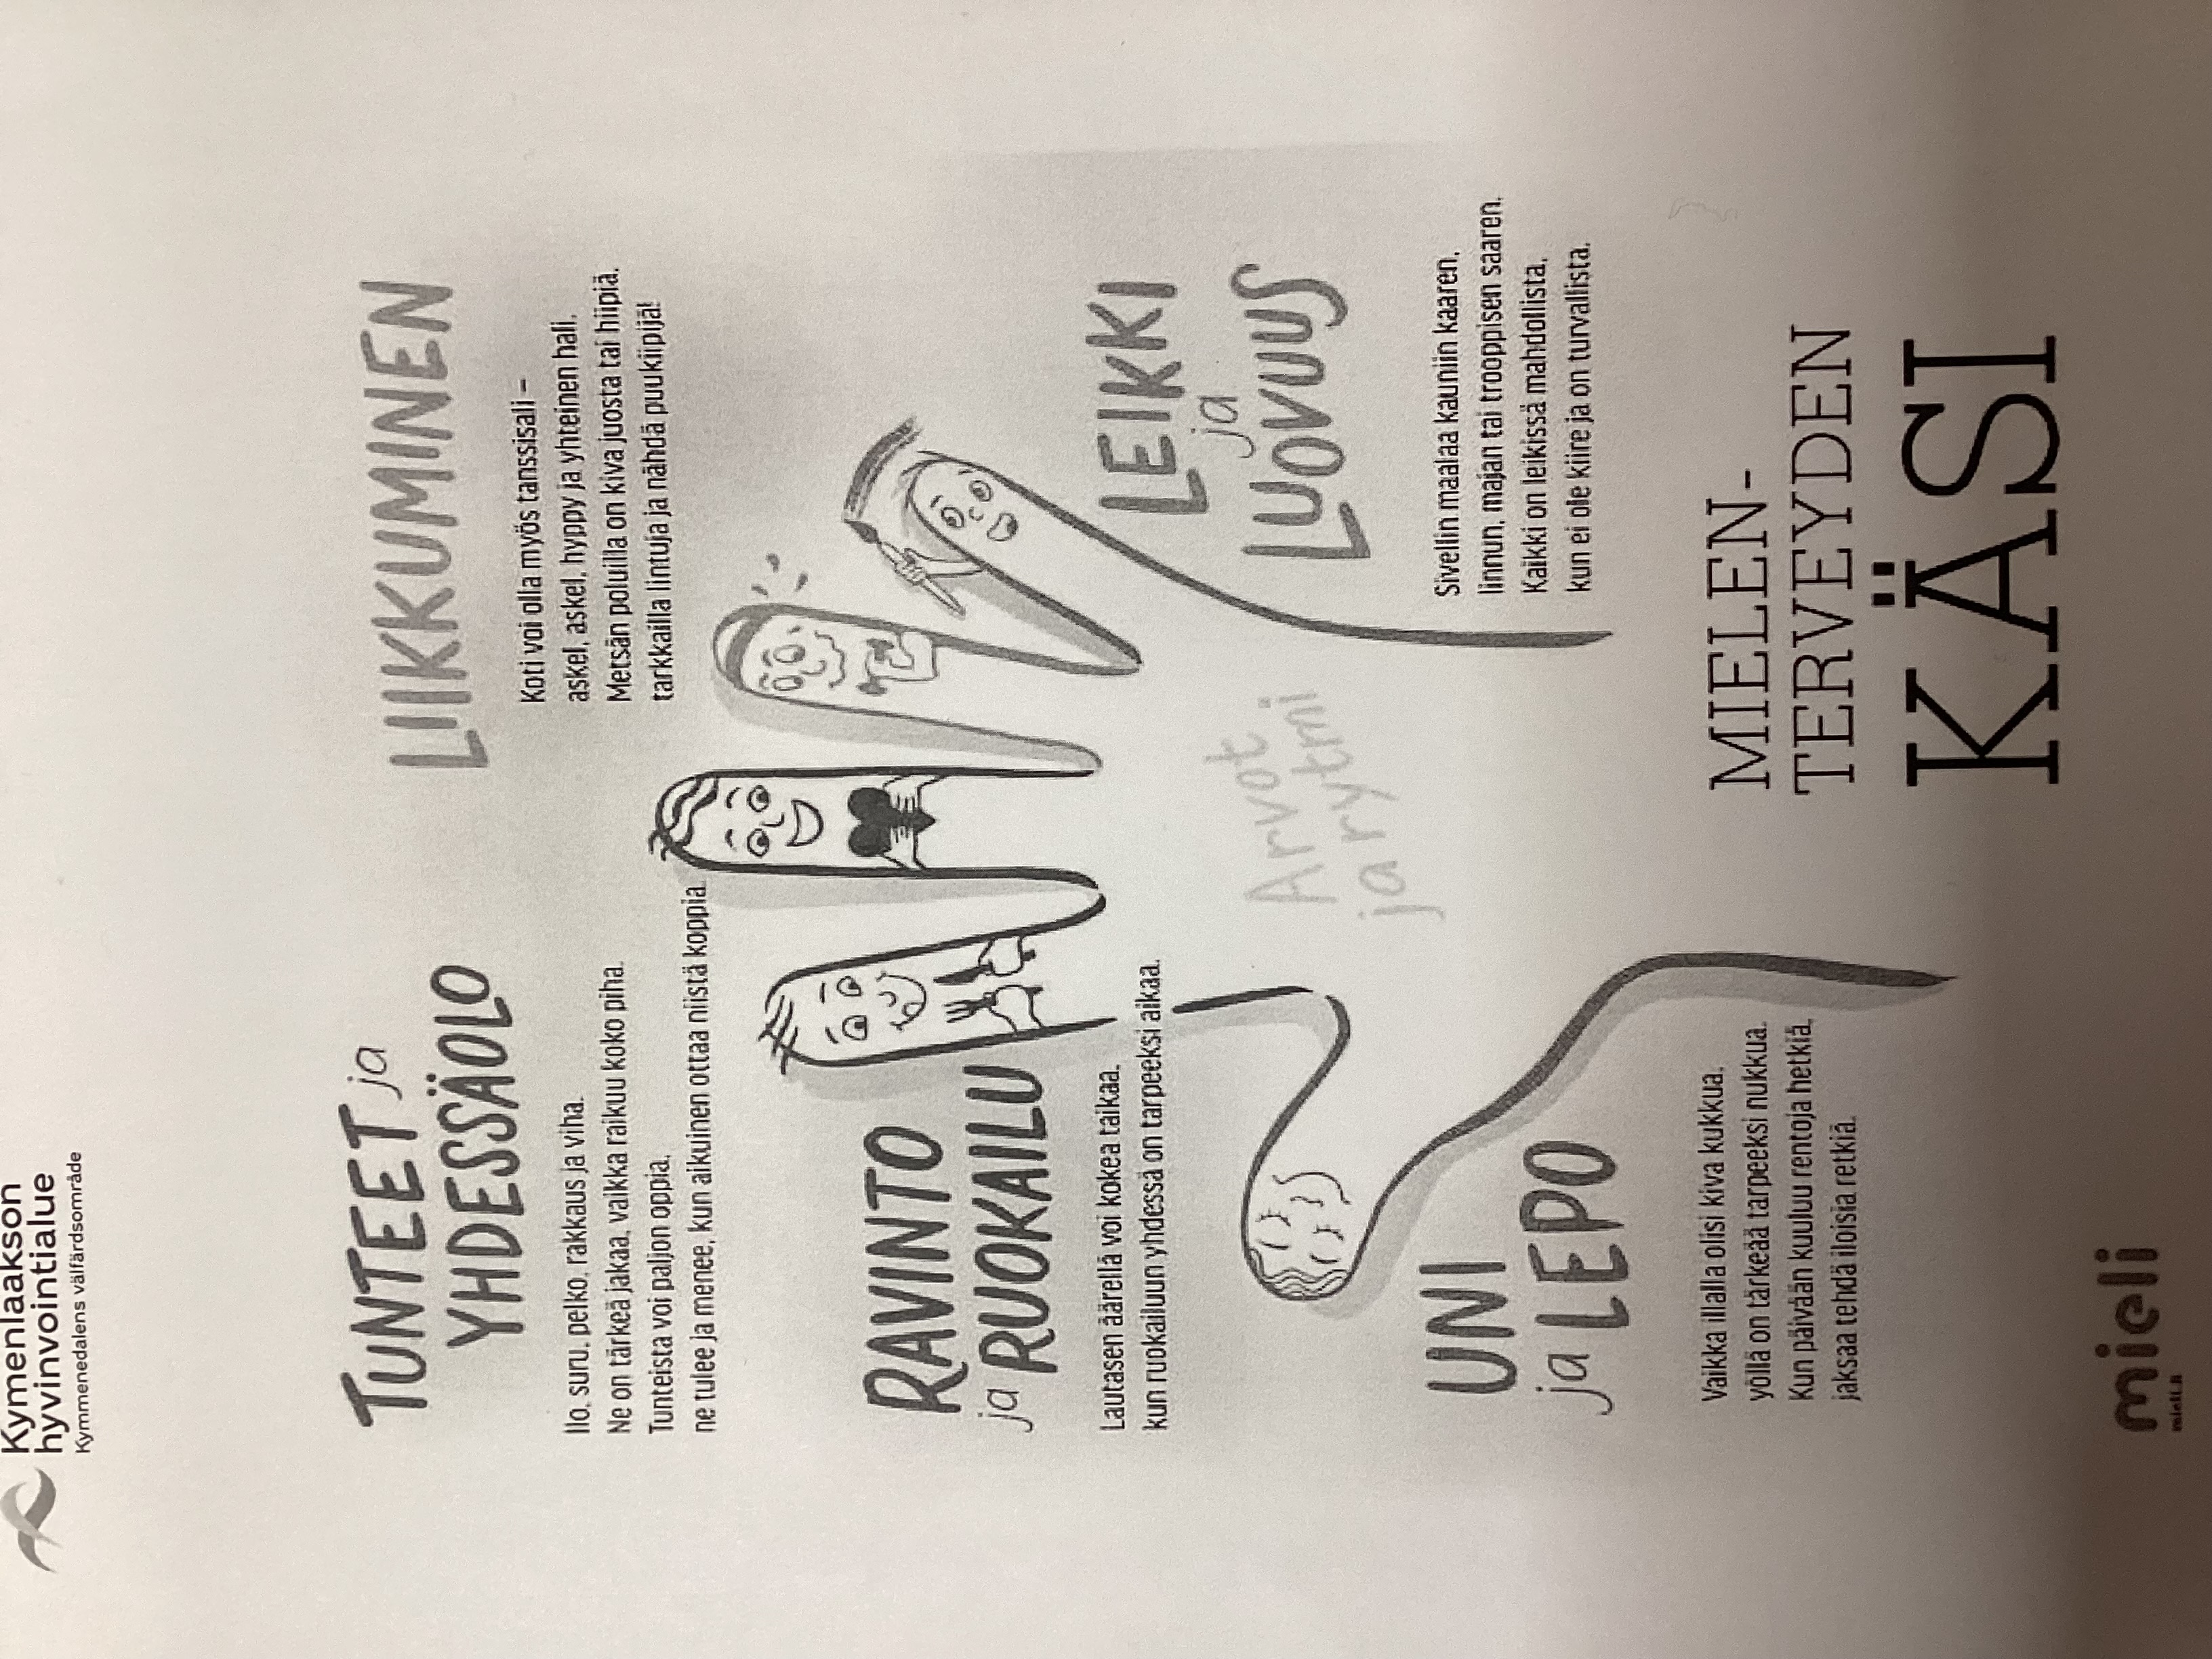 Kymenlaakson
hyvinvointialue
Kymmenedalens välfärdsområde
TUNTEET ja
YHDESSÄOLO
Ilo, suru, pelko, rakkaus ja viha.
Ne on tärkeä jakaa, vaikka raikuu koko piha.
Tunteista voi paljon oppia,
ne tulee ja menee, kun aikuinen ottaa niistä koppia.
LIIKKUMINEN
Koti voi olla myös tanssisali –
askel, askel, hyppy ja yhteinen hali.
Metsän poluilla on kiva juosta tai hiipiä,
tarkkailla lintuja ja nähdä puukiipijä!
RAVINTO
ja RUOKAILU
Lautasen äärellä voi kokea taikaa,
kun ruokailuun yhdessä on tarpeeksi aikaa.
LEIKKI
ja
LUOVUUS
Sivellin maalaa kauniin kaaren,
linnun, majan tai trooppisen saaren.
Kaikki on leikissä mahdollista,
kun ei ole kiire ja on turvallista.
Arvot
ja rytmi
UNI
ja LEPO
Vaikka illalla olisi kiva kukkua,
yöllä on tärkeää tarpeeksi nukkua.
Kun päivään kuuluu rentoja hetkiä,
jaksaa tehdä iloisia retkiä.
MIELEN-
TERVEYDEN
KÄSI
mieli
mieli.fi